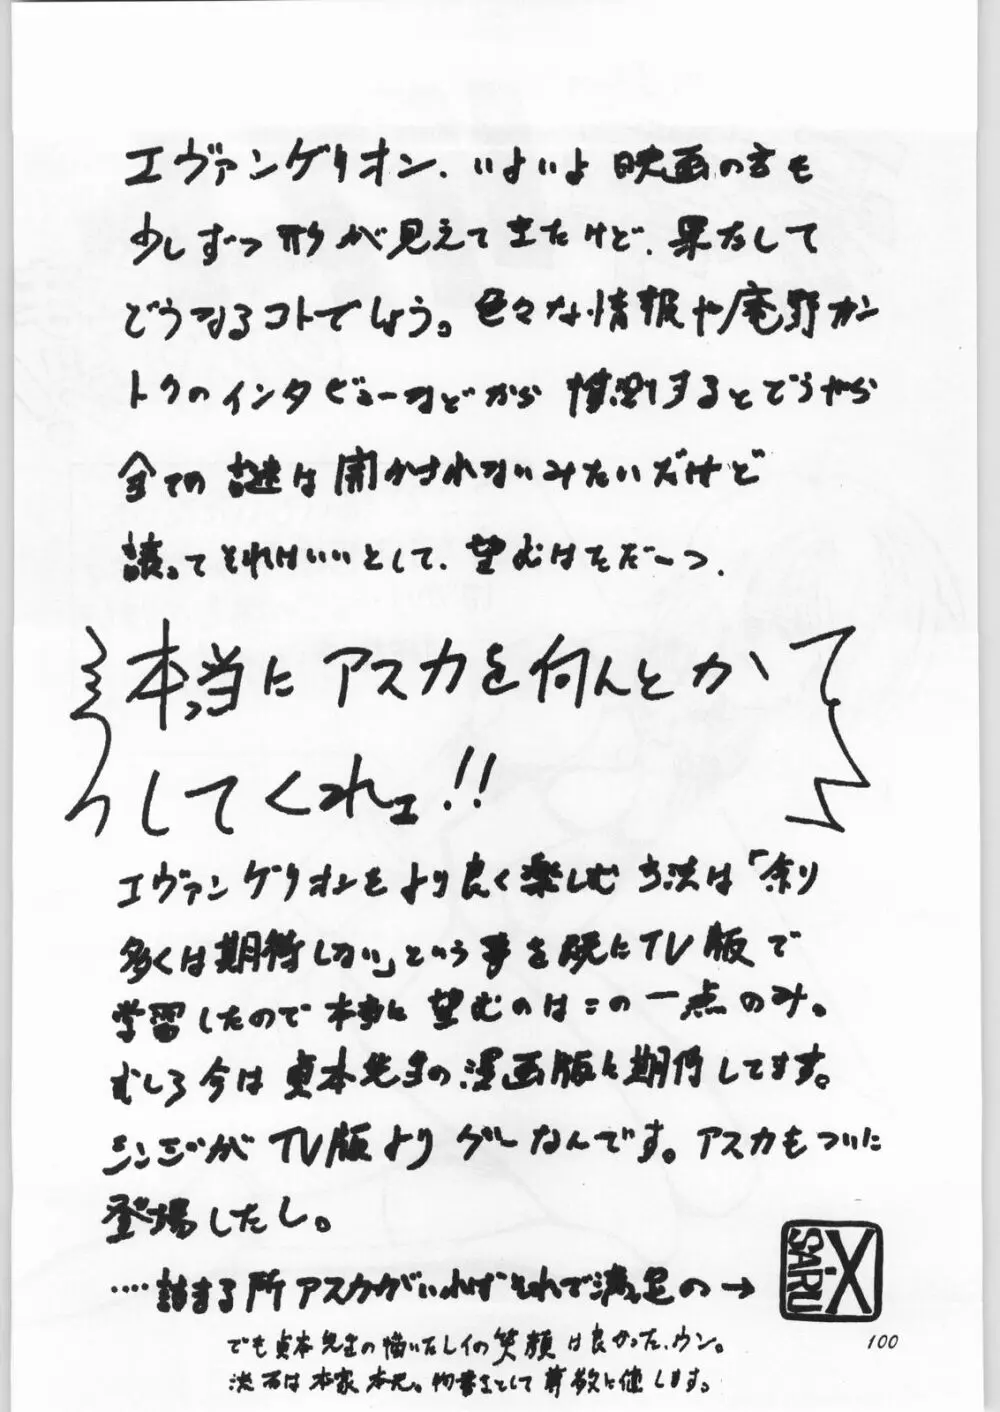 エヴァンゲリオン、いよいよ映画の方も
少しずつ形が見えてきたけど、果たして
どうなるコトでしょう。色々な情報や庵野カン
トクのインタビューなどから推測するとどうやら
全ての謎は開かされないみたいだけど
譲ってそれはいいとして、望むはそだーつ、
本当にアスカを何んとか
してくれェ!!
エヴァンゲリオンをより良く楽しむ方法は「余り
多くは期待しない」という事を既にTV版で
学習したので本当に望むのはこの一点のみ。
むしろ今は貞本先生の漫画版に期待してます。
シンジがTV版よりグーなんです。アスカもついに
登場したし。
‥‥詰まる所アスカがいればそれで満足の→
X-SARU
でも貞本先生の描いたレイの笑顔は良かった、ウン。
流石は本家本元。物書きとして尊敬に値します。
100